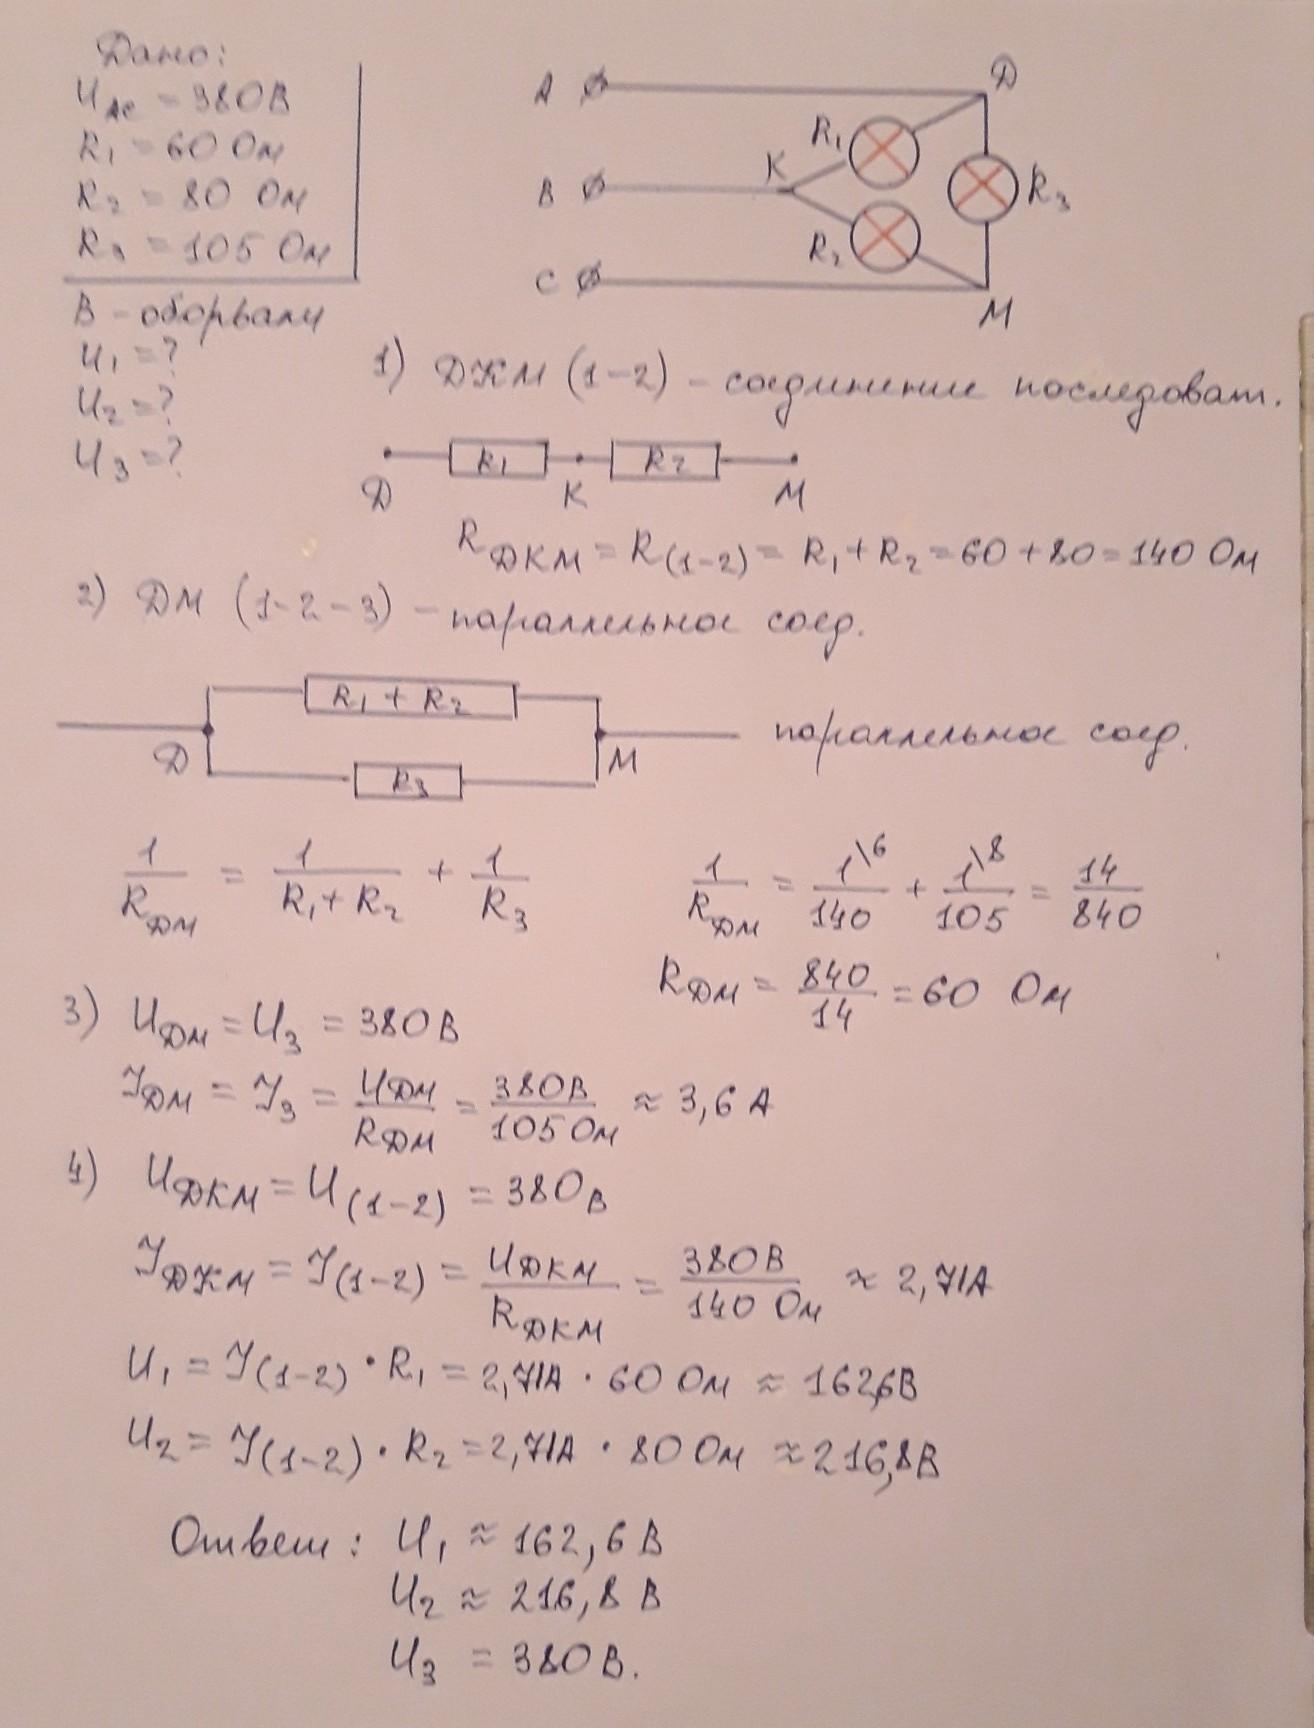 Дано:
U_AC = 380В
R₁ = 60 Ом
R₂ = 80 Ом
R₃ = 105 Ом
В - оборвали
U₁ = ?
U₂ = ?
U₃ = ?
A
Д
R₁
K
B
R₃
R₂
C
M
1) ДКМ (1-2) - соединение последоват.
R₁
R₂
Д
K
M
R_ДКМ = R_(1-2) = R₁ + R₂ = 60 + 80 = 140 Ом
2) ДМ (1-2-3) - параллельное соед.
R₁ + R₂
Д
M
параллельное соед.
R₃
1/R_ДМ = 1/(R₁ + R₂) + 1/R₃
1/R_ДМ = 1\6/140 + 1\8/105 = 14/840
R_ДМ = 840/14 = 60 Ом
3) U_ДМ = U₃ = 380В
I_ДМ = I₃ = U_ДМ/R_ДМ = 380В/105 Ом ≈ 3,6 А
4) U_ДКМ = U_(1-2) = 380В
I_ДКМ = I_(1-2) = U_ДКМ/R_ДКМ = 380В/140 Ом ≈ 2,71А
U₁ = I_(1-2) · R₁ = 2,71А · 60 Ом ≈ 162,6В
U₂ = I_(1-2) · R₂ = 2,71А · 80 Ом ≈ 216,8В
Ответ: U₁ ≈ 162,6 В
U₂ ≈ 216,8 В
U₃ = 380В.